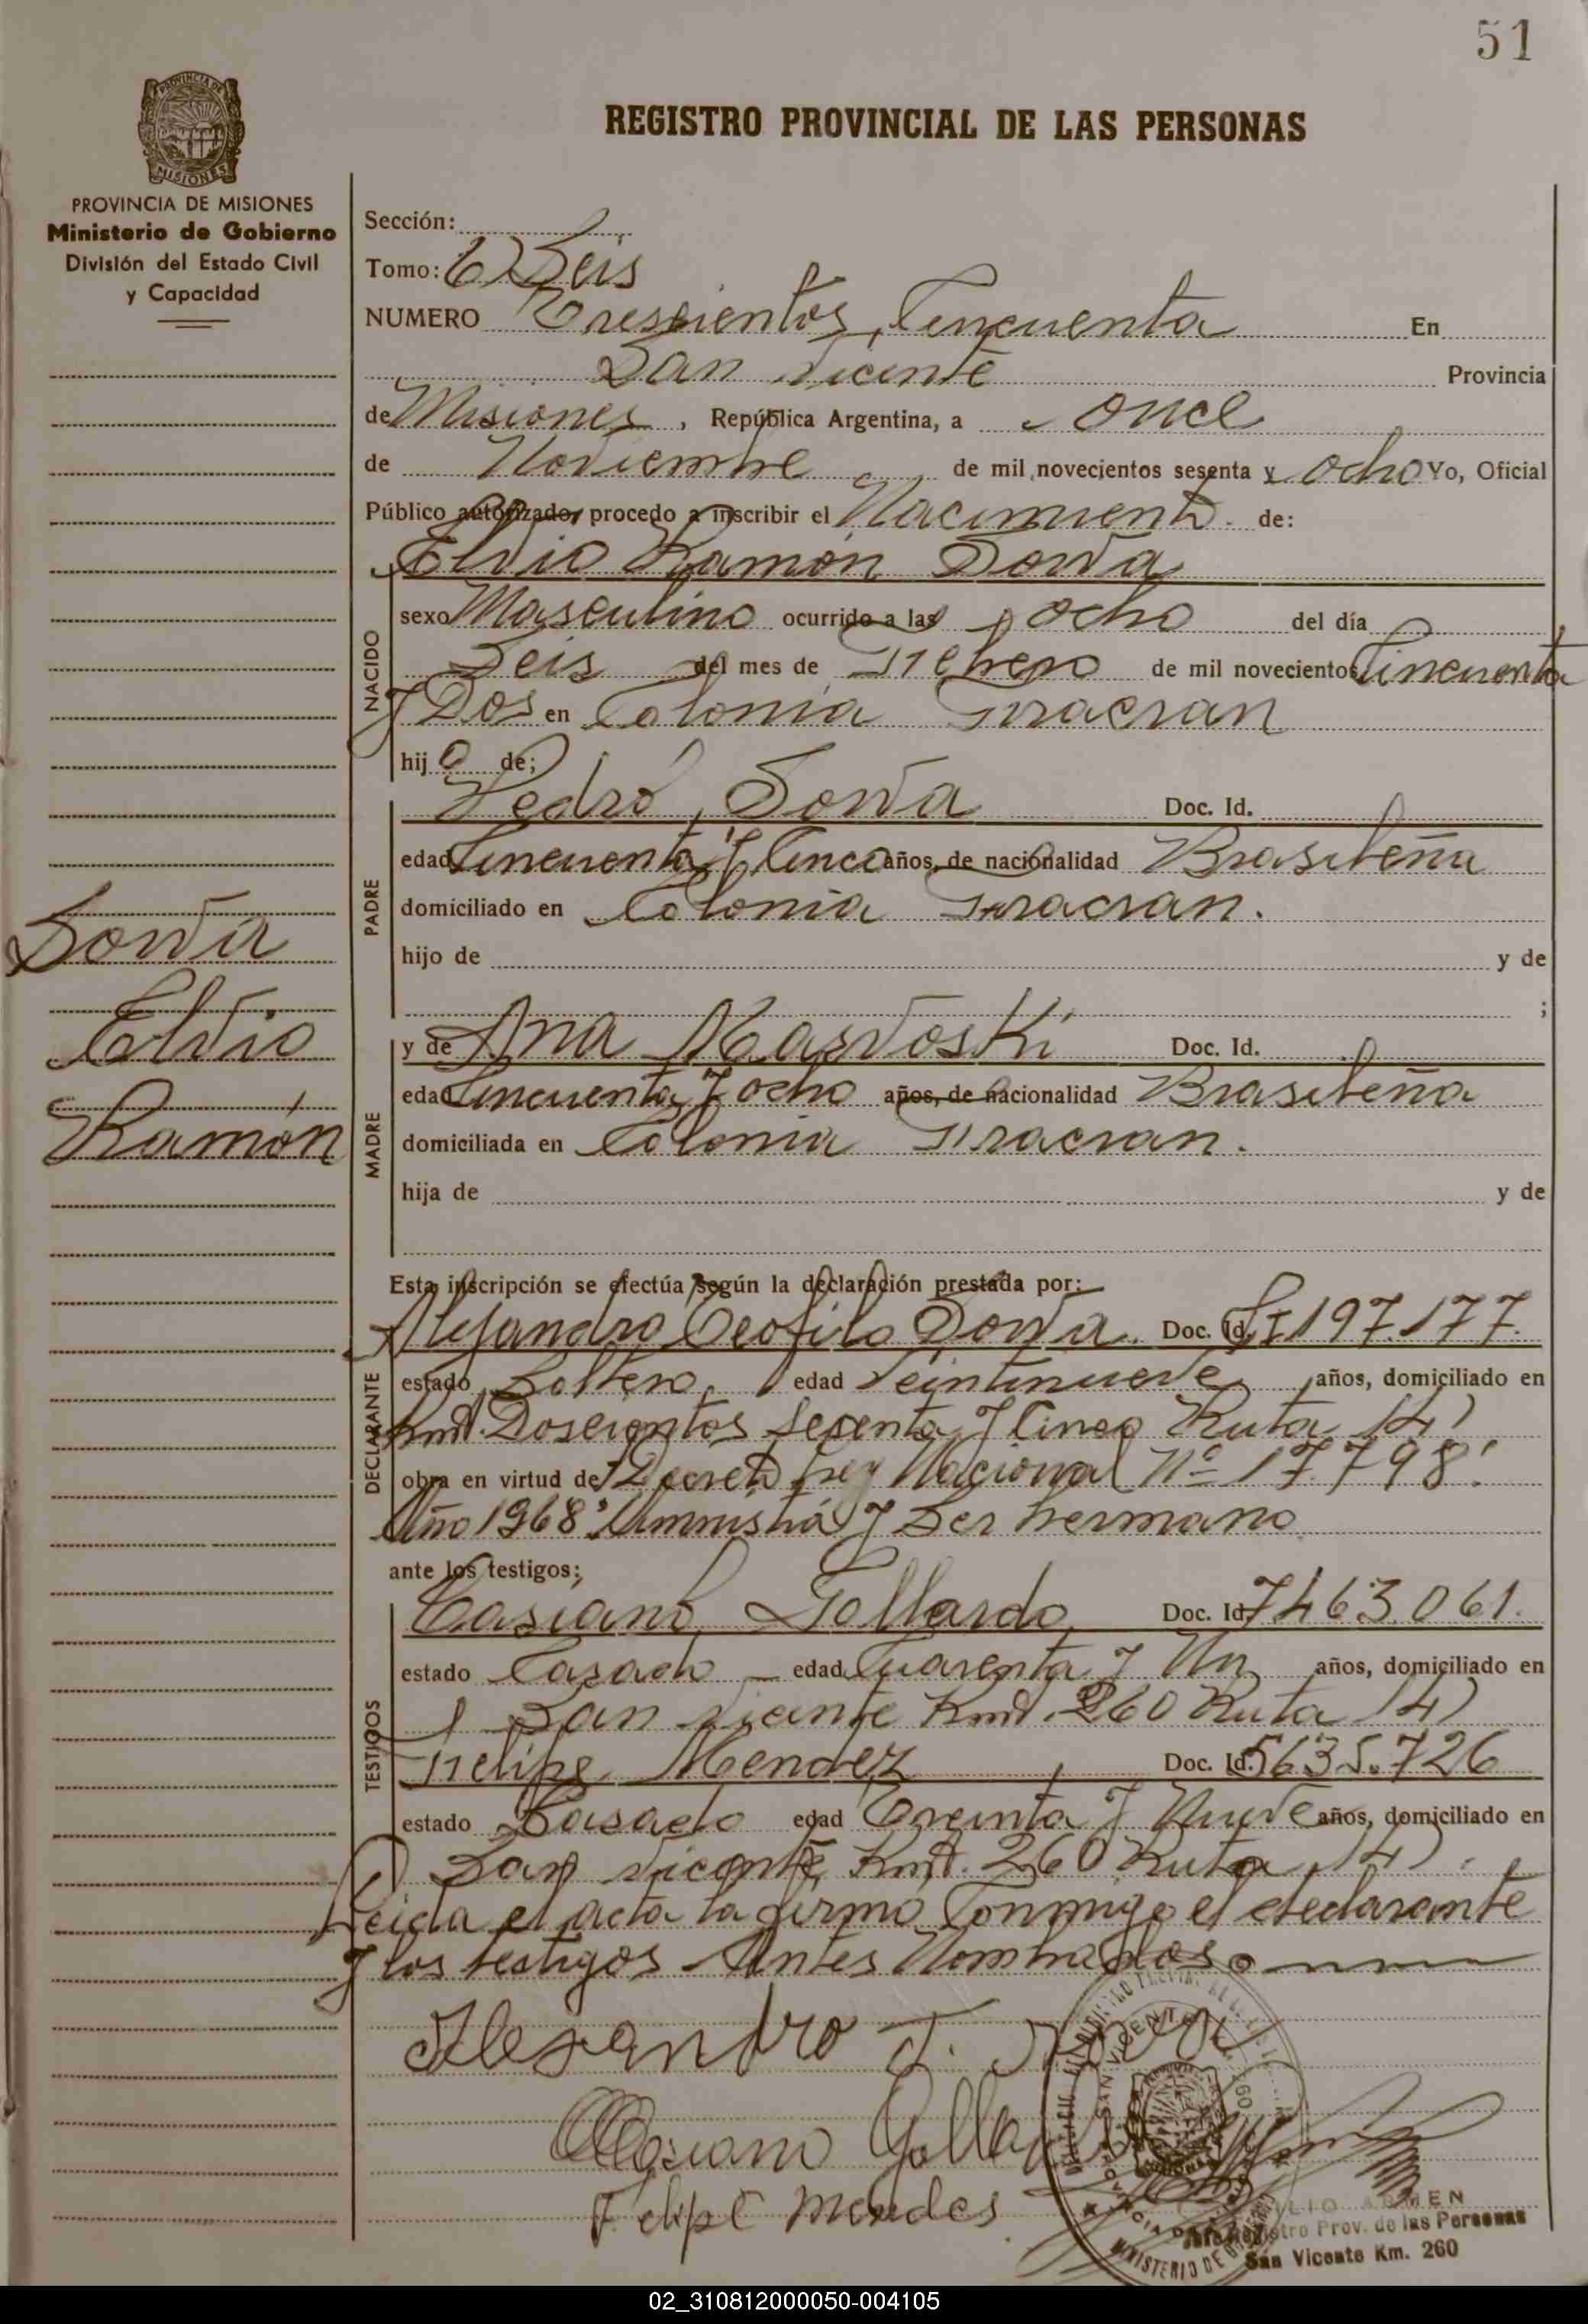 51
REGISTRO PROVINCIAL DE LAS PERSONAS
PROVINCIA DE MISIONES
PROVINCIA DE MISIONES
Ministerio de Gobierno
División del Estado Civil
y Capacidad
Sección:
Tomo: 6) Seis
NUMERO Trescientos Cincuenta En
San Vicente Provincia
de Misiones, República Argentina, a once
de Noviembre de mil novecientos sesenta y ocho Yo, Oficial
Público autorizado, procedo a inscribir el Nacimiento de:
Elvio Ramón Sova
NACIDO
sexo Masculino ocurrido a las ocho del día
Seis del mes de Febrero de mil novecientos Cincuenta
y Dos en Colonia Fracran
hijo de;
Pedro Sova Doc. Id.
PADRE
edad Cincuenta y Cinco años, de nacionalidad Brasileña
domiciliado en Colonia Fracran.
hijo de y de
;
Sova
Elvio
Ramón
y de Ana Doc. Id.
MADRE
edad Cincuenta y ocho años, de nacionalidad Brasileña
domiciliada en Colonia Fracran.
hija de y de
Esta inscripción se efectúa según la declaración prestada por:
Alejandro Teofilo Sova Doc. Id. 197.177.
DECLARANTE
estado Soltero, edad Veintinueve años, domiciliado en
Kmt. Doscientos Sesenta y Cinco Ruta 14)
obra en virtud de Decreto Ley Nacional Nº 17.798'
Año 1968' Amnistía y Ser hermano
ante los testigos;
Casiano Gallardo Doc. Id. 7463.061.
TESTIGOS
estado Casado edad Cuarenta y Un años, domiciliado en
San Vicente Kmt. 260 Ruta 14)
Felipe Mendez Doc. Id. 5635.726
estado Casado edad Treinta y Nueve años, domiciliado en
San Vicente Kmt. 260 Ruta 14)
Leida el acta la firma Conmigo el declarante
y los testigos Antes Nombrados
Alesandro T. Sova
Casiano Gallardo
Felipe Mendes
Registro Prov. de las Personas
San Vicente Km. 260
02_310812000050-004105